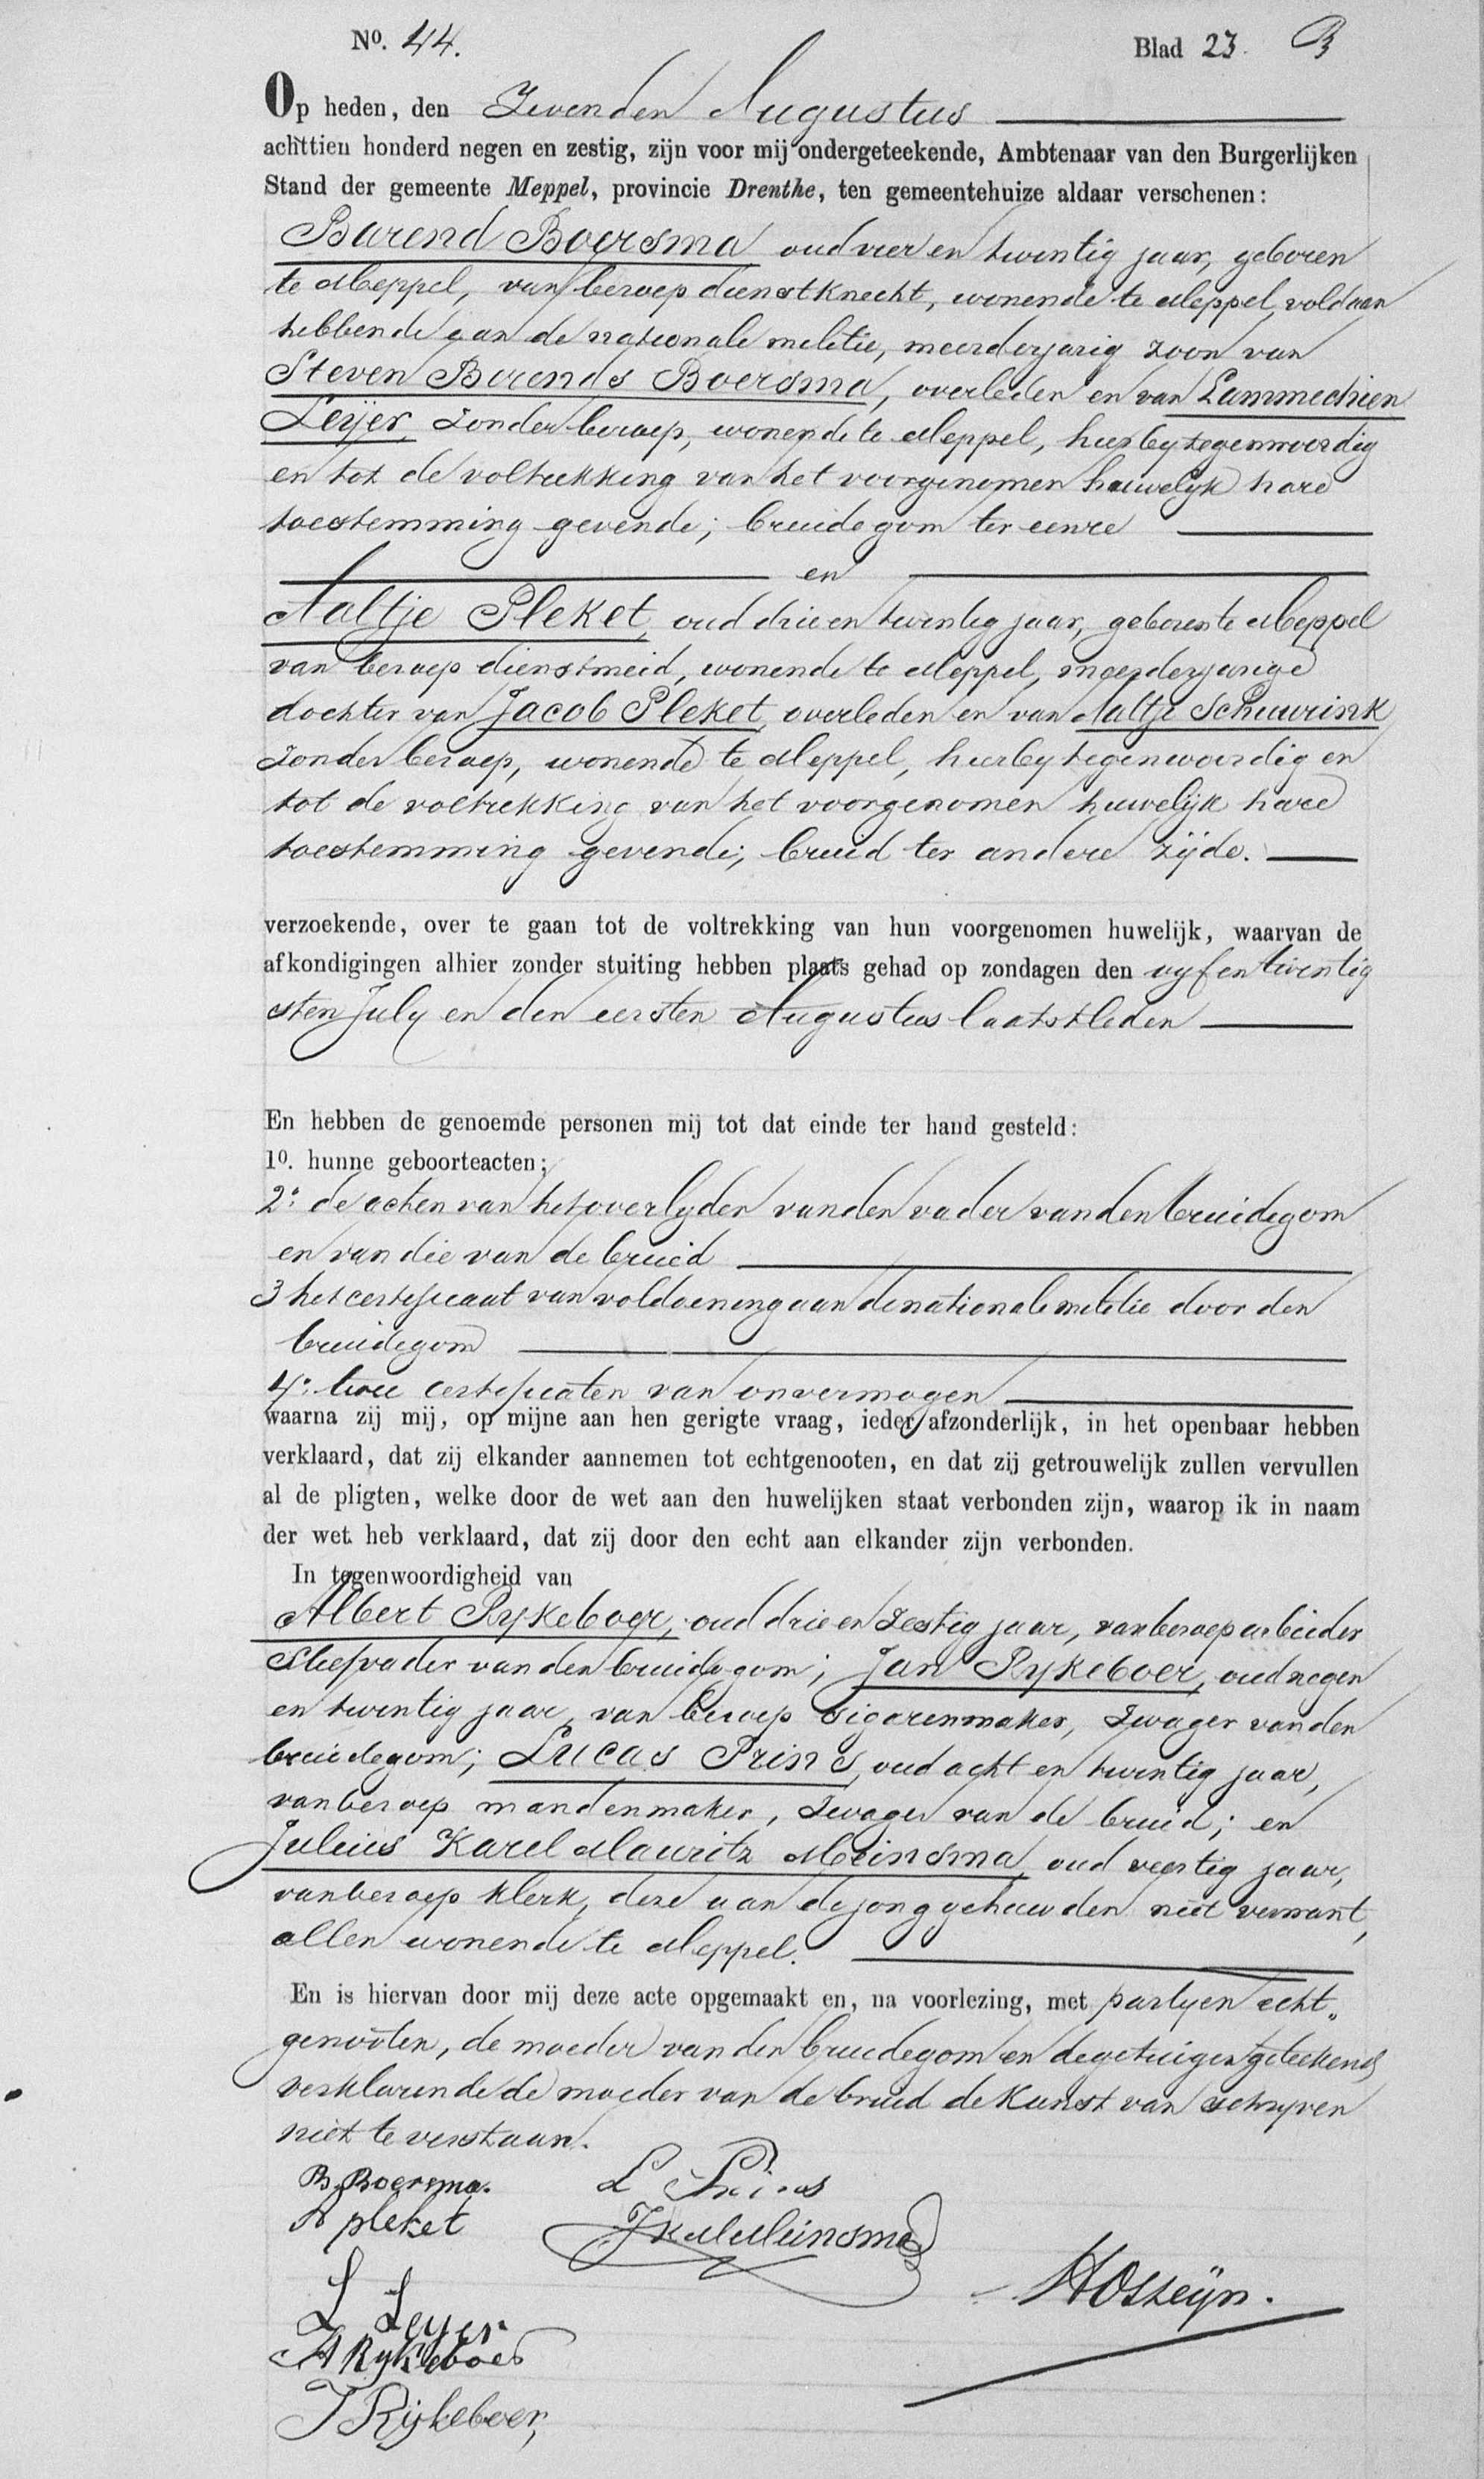 No. 44. Blad 23. B
Op heden, den Zevenden Augustus
achttien honderd negen en zestig, zijn voor mij ondergeteekende, Ambtenaar van den Burgerlijken
Stand der gemeente Meppel, provincie Drenthe, ten gemeentehuize aldaar verschenen:
Barend Boersma oud vier en twintig jaar, geboren
te Meppel, van beroep dienstknecht, wonende te Meppel, voldaan
hebbende aan de nationale militie, meerderjarig zoon van
Steven Berends Boersma, overleden en van Lammechien
Leijer, zonder beroep, wonende te Meppel, hierby tegenwoordig
en tot de voltrekking van het voorgenomen huwelijk hare
toestemming gevende; bruidegom ter eenre
en
Aaltje Pleket, oud drie en twintig jaar, geboren te Meppel
van beroep dienstmeid, wonende te Meppel, meerderjarige
dochter van Jacob Pleket, overleden en van Aaltje Scheuwrink
zonder beroep, wonende te Meppel, hierby tegenwoordig en
tot de voltrekking van het voorgenomen huwelijk hare
toestemming gevende; bruid ter andere zijde.
verzoekende, over te gaan tot de voltrekking van hun voorgenomen huwelijk, waarvan de
afkondigingen alhier zonder stuiting hebben plaats gehad op zondagen den vyf en twintig
sten July en den eersten Augustus laatstleden
En hebben de genoemde personen mij tot dat einde ter hand gesteld:
1o. hunne geboorteacten;
2o: de acten van het overlyden van den vader van den bruidegom
en van die van de bruid
3 het certificaat van voldoening aan de nationale militie door den
bruidegom
4o: twee certificaten van onvermogen
waarna zij mij, op mijne aan hen gerigte vraag, ieder afzonderlijk, in het openbaar hebben
verklaard, dat zij elkander aannemen tot echtgenooten, en dat zij getrouwelijk zullen vervullen
al de pligten, welke door de wet aan den huwelijken staat verbonden zijn, waarop ik in naam
der wet heb verklaard, dat zij door den echt aan elkander zijn verbonden.
In tegenwoordigheid van
Albert Rykeboer, oud drie en zestig jaar, van beroep arbeider
stiefvader van den bruidegom; Jan Rykeboer, oud negen
en twintig jaar, van beroep sigarenmaker, zwager van den
bruidegom; Lucas Prins, oud acht en twintig jaar,
van beroep mandenmaker, zwager van de bruid; en
Julius Karel Mauritz Meinsma, oud veertig jaar,
van beroep klerk, deze aan de jong gehuwden niet verwant,
allen wonende te Meppel.
En is hiervan door mij deze acte opgemaakt en, na voorlezing, met partyen echt„
genooten, de moeder van den bruidegom en de getuigen geteekend,
verklarende de moeder van de bruid de kunst van schryven
niet te verstaan.
B. Boersma. L Prins
A pleket JKMMeinsma
L Leyer HOsteÿn.
A Rykeboer
J Rijkeboer,